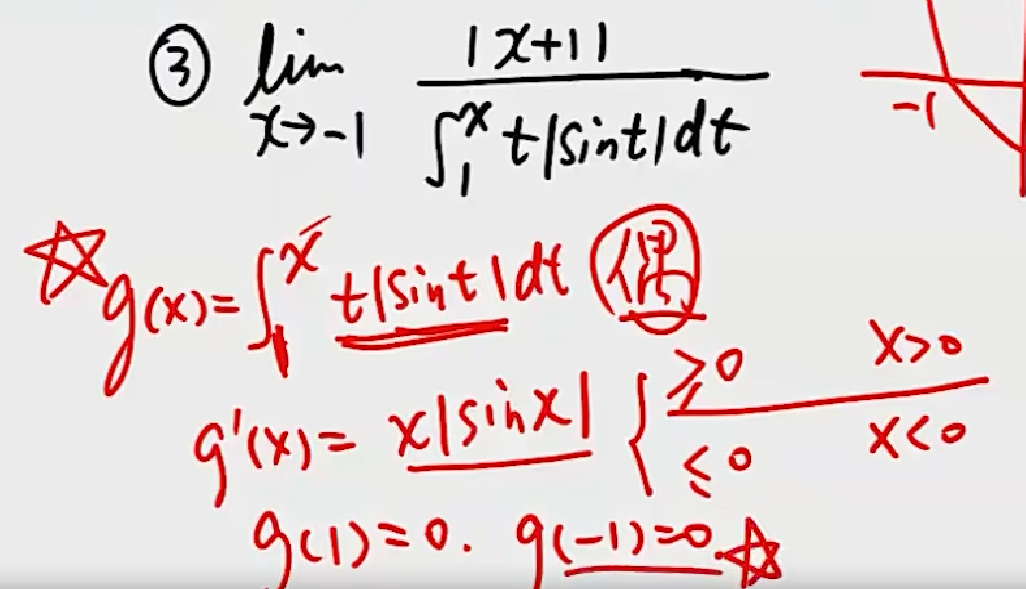 ③ lim x→-1 |x+1| / ∫₁ˣ t|sint|dt
-1
☆ g(x)=∫₁ˣ t|sint|dt 偶
g'(x)= x|sinx| { ≥0 x>0
≤0 x<0
g(1)=0. g(-1)=0. ☆